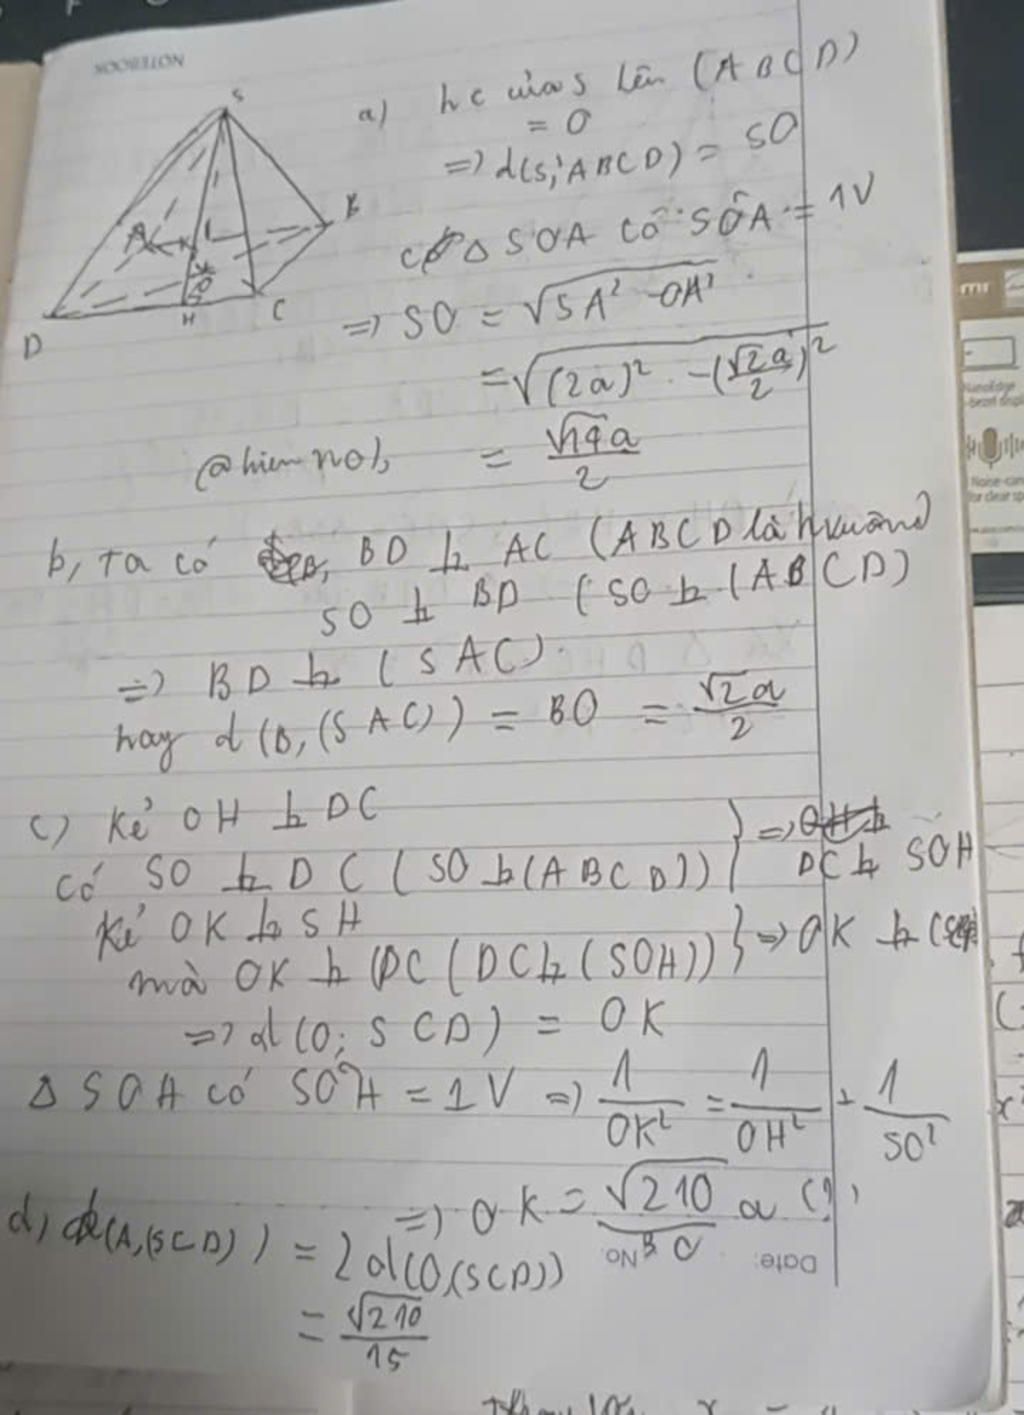 NOTEBOOK
S
A
B
D
H
C
O
K
a) hc của S lên (ABCD)
= O
=> d(S; ABCD) = SO
Δ SOA có SÔA = 1V
=> SO = √SA² - OA²
= √(2a)² - (√2a/2)²
= √14a/2
b, ta có BD ⊥ AC (ABCD là hvuông)
SO ⊥ BD (SO ⊥ (ABCD)
=> BD ⊥ (SAC).
hay d(B, (SAC)) = BO = √2a/2
c) Kẻ OH ⊥ DC
Có SO ⊥ DC (SO ⊥ (ABCD)) } => DC ⊥ SOH
Kẻ OK ⊥ SH
mà OK ⊥ DC (DC ⊥ (SOH)) } => OK ⊥
=> d(O; SCD) = OK
Δ SOH có SÔH = 1V => 1/OK² = 1/OH² + 1/SO²
=> OK = √210/30 a
d, d(A,(SCD)) = 2d(O,(SCD))
= √210/15
No.
Date:
mr
NanoEdge
Noise-can
for clear sp